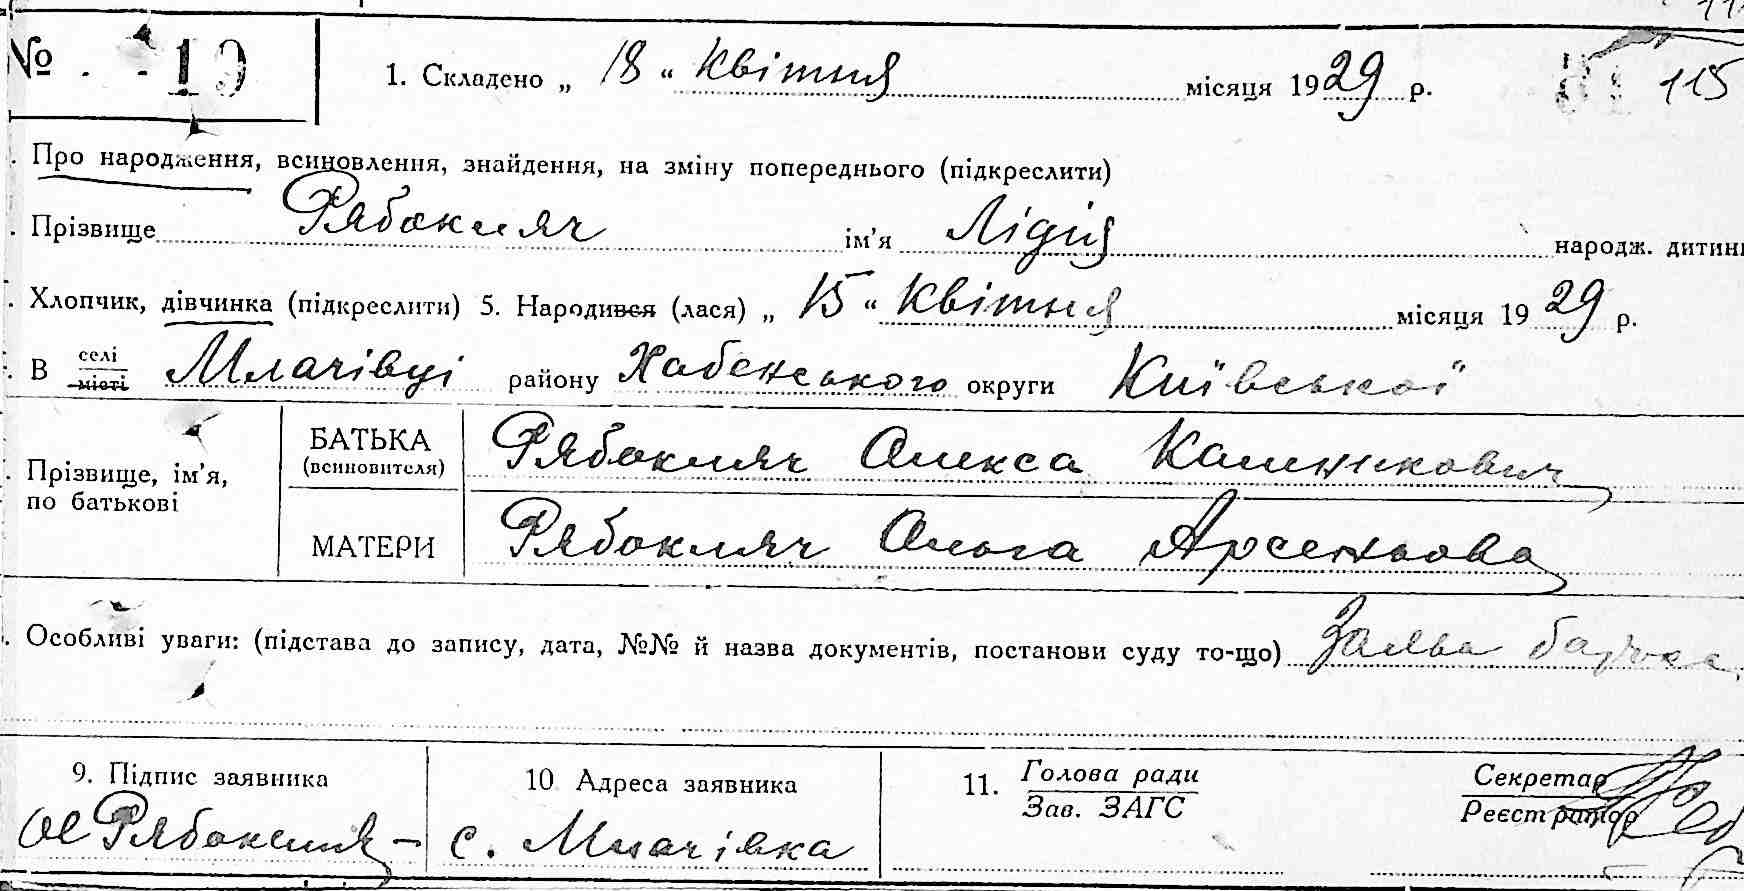 № 19 1. Складено „ 18 “ Квітня місяця 1929 р. 115
. Про народження, всиновлення, знайдення, на зміну попереднього (підкреслити)
. Прізвище Рябокляч ім’я Лідія народж. дитини
. Хлопчик, дівчинка (підкреслити) 5. Народився (лася) „ 15 “ Квітня місяця 1929 р.
. В селі
місті Млачівці району Хабенського округи Київської
Прізвище, ім’я,
по батькові
БАТЬКА
(всиновителя)
Рябокляч Олекса Калинікович
МАТЕРИ
Рябокляч Ольга Арсеньова
. Особливі уваги: (підстава до запису, дата, №№ й назва документів, постанови суду то-що) Заява батька
9. Підпис заявника
Ол Рябокляч
10 Адреса заявника
с. Млачівка
11. Голова ради
Зав. ЗАГС
Секретар
Реєстратор